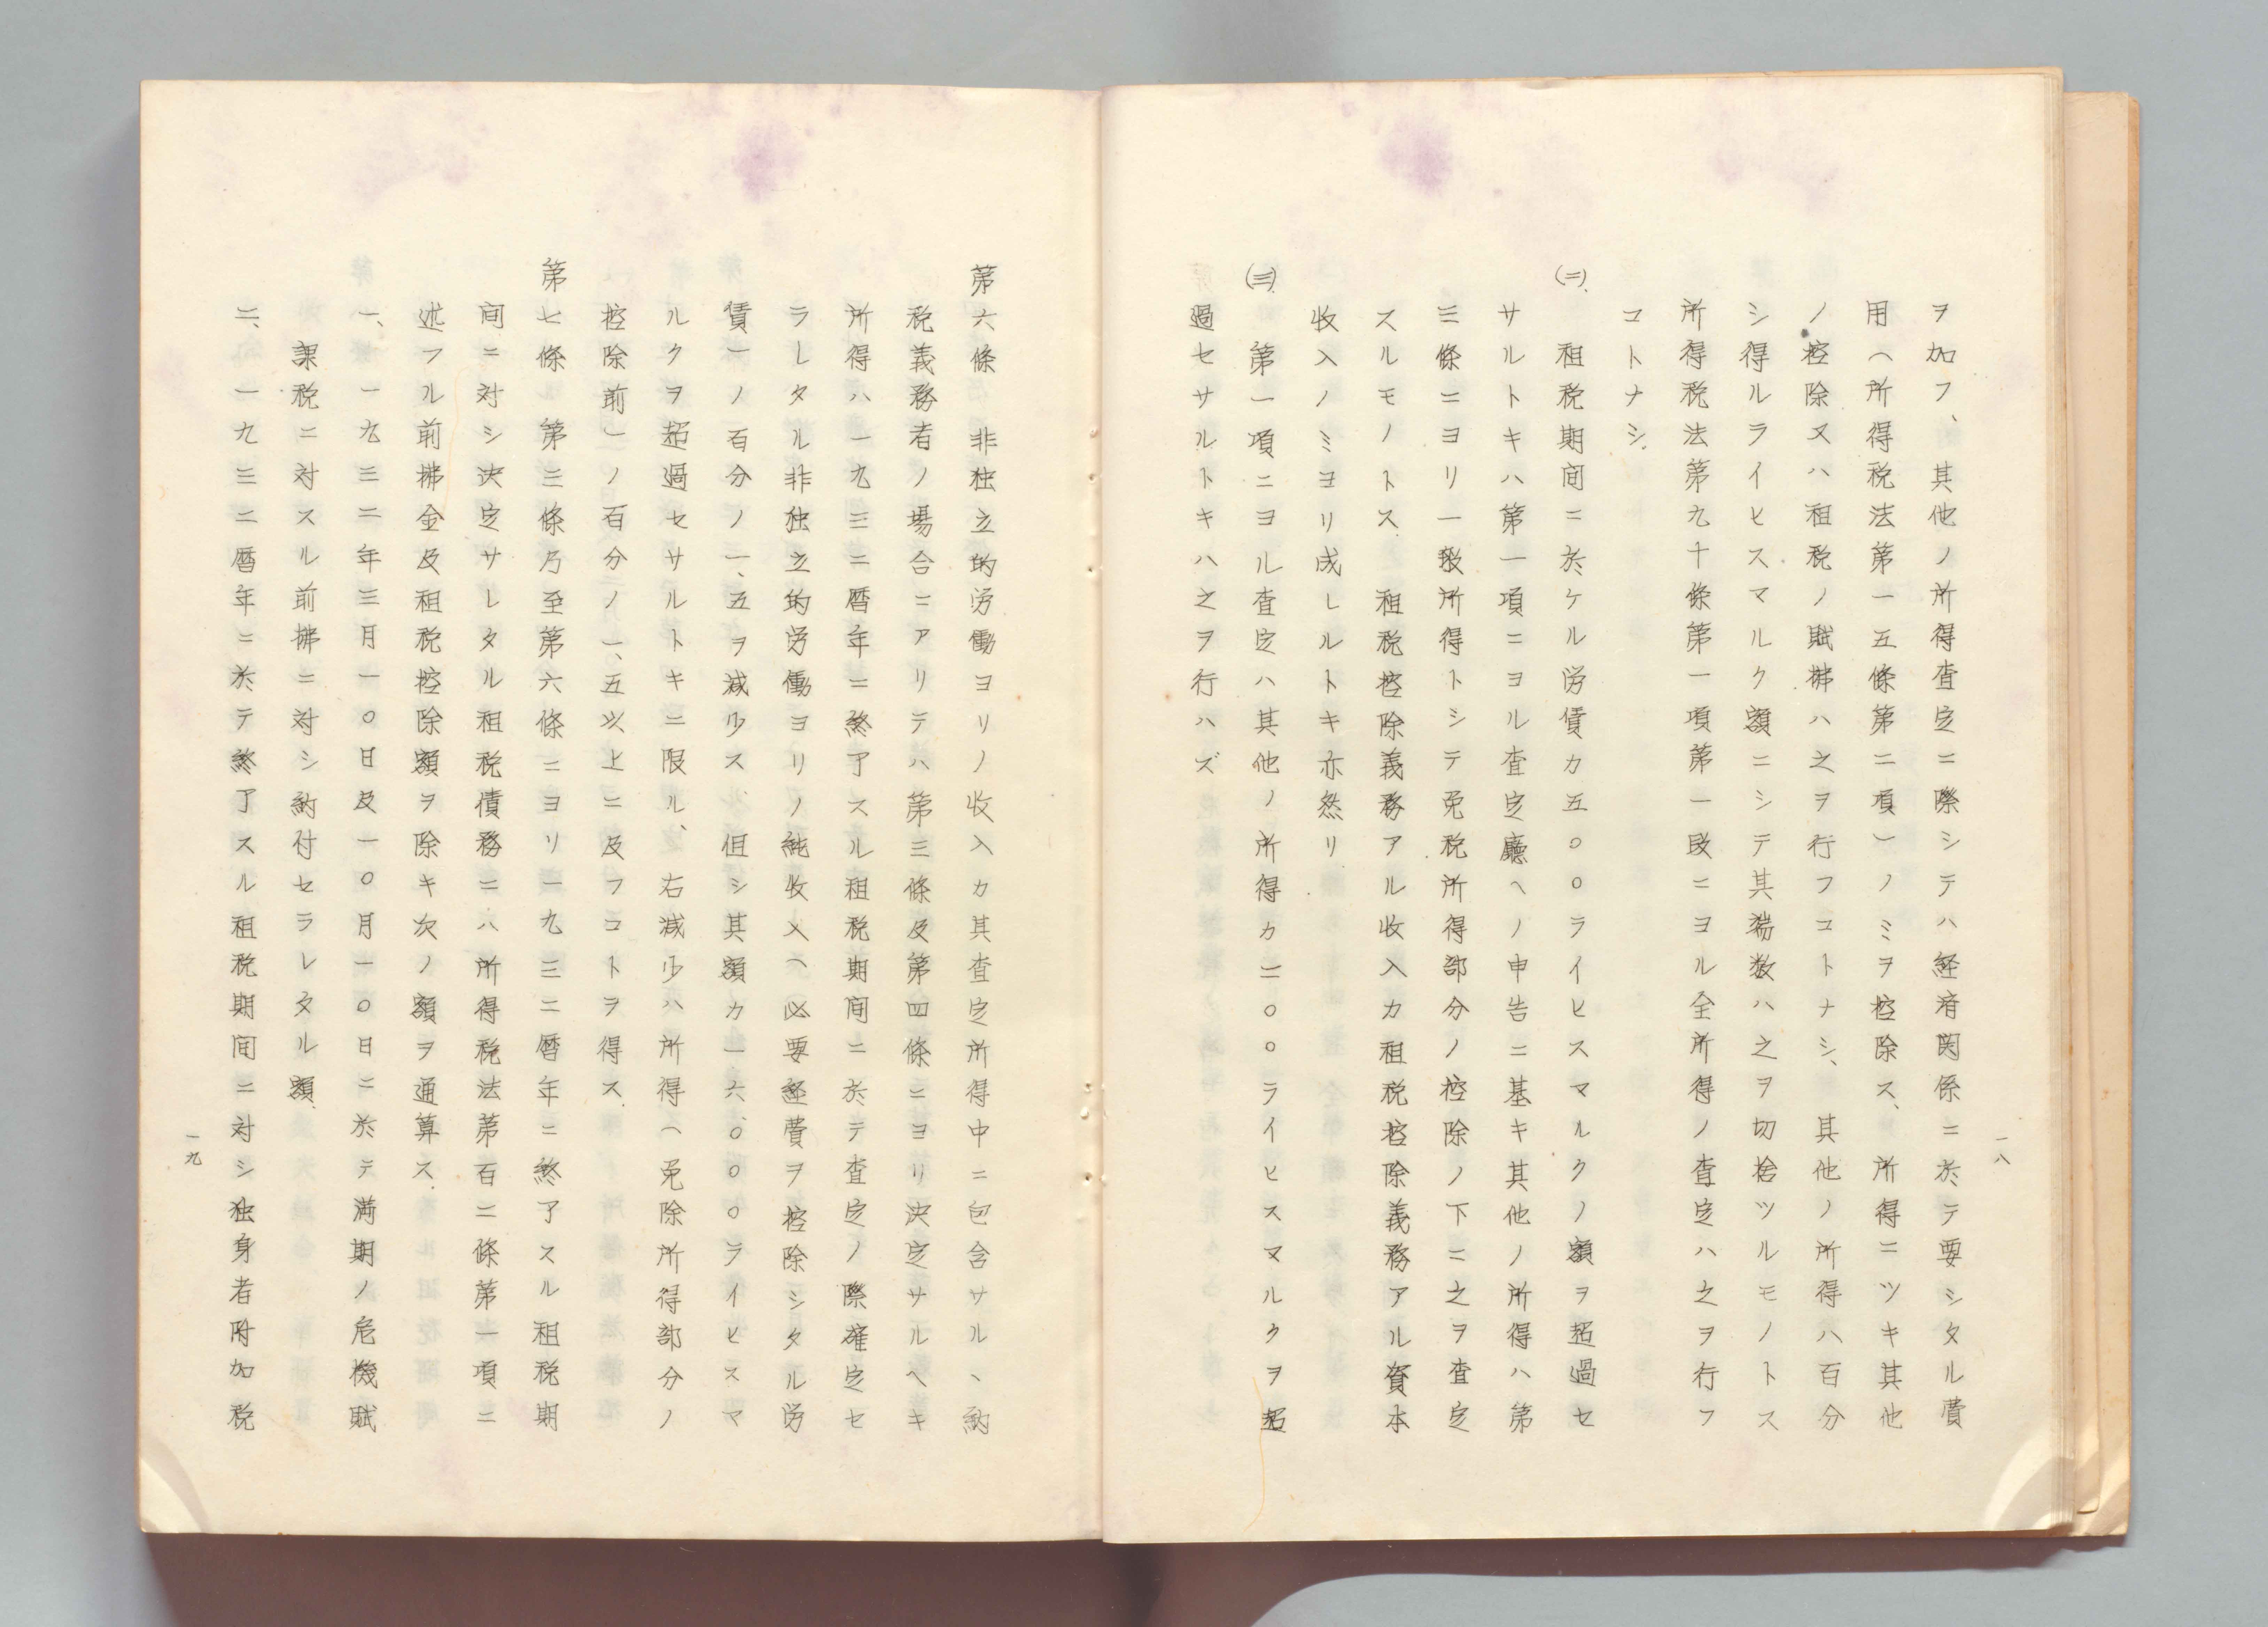 一八
ヲ加フ、其他ノ所得査定ニ際シテハ経済関係ニ於テ要シタル費
用（所得税法第一五條第二項）ノミヲ控除ス、所得ニツキ其他
ノ控除又ハ租税ノ賦拂ハ之ヲ行フコトナシ、其他ノ所得ハ百分
シ得ルライヒスマルク額ニシテ其端数ハ之ヲ切捨ツルモノトス
所得税法第九十條第一項第一段ニヨル全所得ノ査定ハ之ヲ行フ
コトナシ、
(二)、租税期間ニ於ケル労賃カ五〇〇ライヒスマルクノ額ヲ超過セ
サルトキハ第一項ニヨル査定廳ヘノ申告ニ基キ其他ノ所得ハ第
三條ニヨリ一般所得トシテ免税所得部分ノ控除ノ下ニ之ヲ査定
スルモノトス 租税控除義務アル收入カ租税控除義務アル資本
收入ノミヨリ成レルトキ亦然リ、
(三)、第一項ニヨル査定ハ其他ノ所得カ二〇〇ライヒスマルクヲ超
過セサルトキハ之ヲ行ハズ
第六條 非独立的労働ヨリノ收入カ其査定所得中ニ包含サルヽ納
税義務者ノ場合ニアリテハ第三條及第四條ニヨリ決定サルヘキ
所得ハ一九三二暦年ニ終了スル租税期間ニ於テ査定ノ際確定セ
ラレタル非独立的労働ヨリノ純收入（必要経費ヲ控除シタル労
賃）ノ百分ノ一、五ヲ減少ス、但シ其額カ一六、〇〇〇ライヒスマ
ルクヲ超過セサルトキニ限ル、右減少ハ所得（免除所得部分ノ
控除前）ノ百分ノ一、五以上ニ及フコトヲ得ス、
第七條 第三條乃至第六條ニヨリ一九三二暦年ニ終了スル租税期
間ニ対シ決定サレタル租税債務ニハ所得税法第百二條第一項ニ
述フル前拂金及租税控除額ヲ除キ次ノ額ヲ通算ス、
一、一九三二年三月一〇日及一〇月一〇日ニ於テ満期ノ危機賦
課税ニ対スル前拂ニ対シ納付セラレタル額、
二、一九三二暦年ニ於テ終了スル租税期間ニ対シ独身者附加税
一九